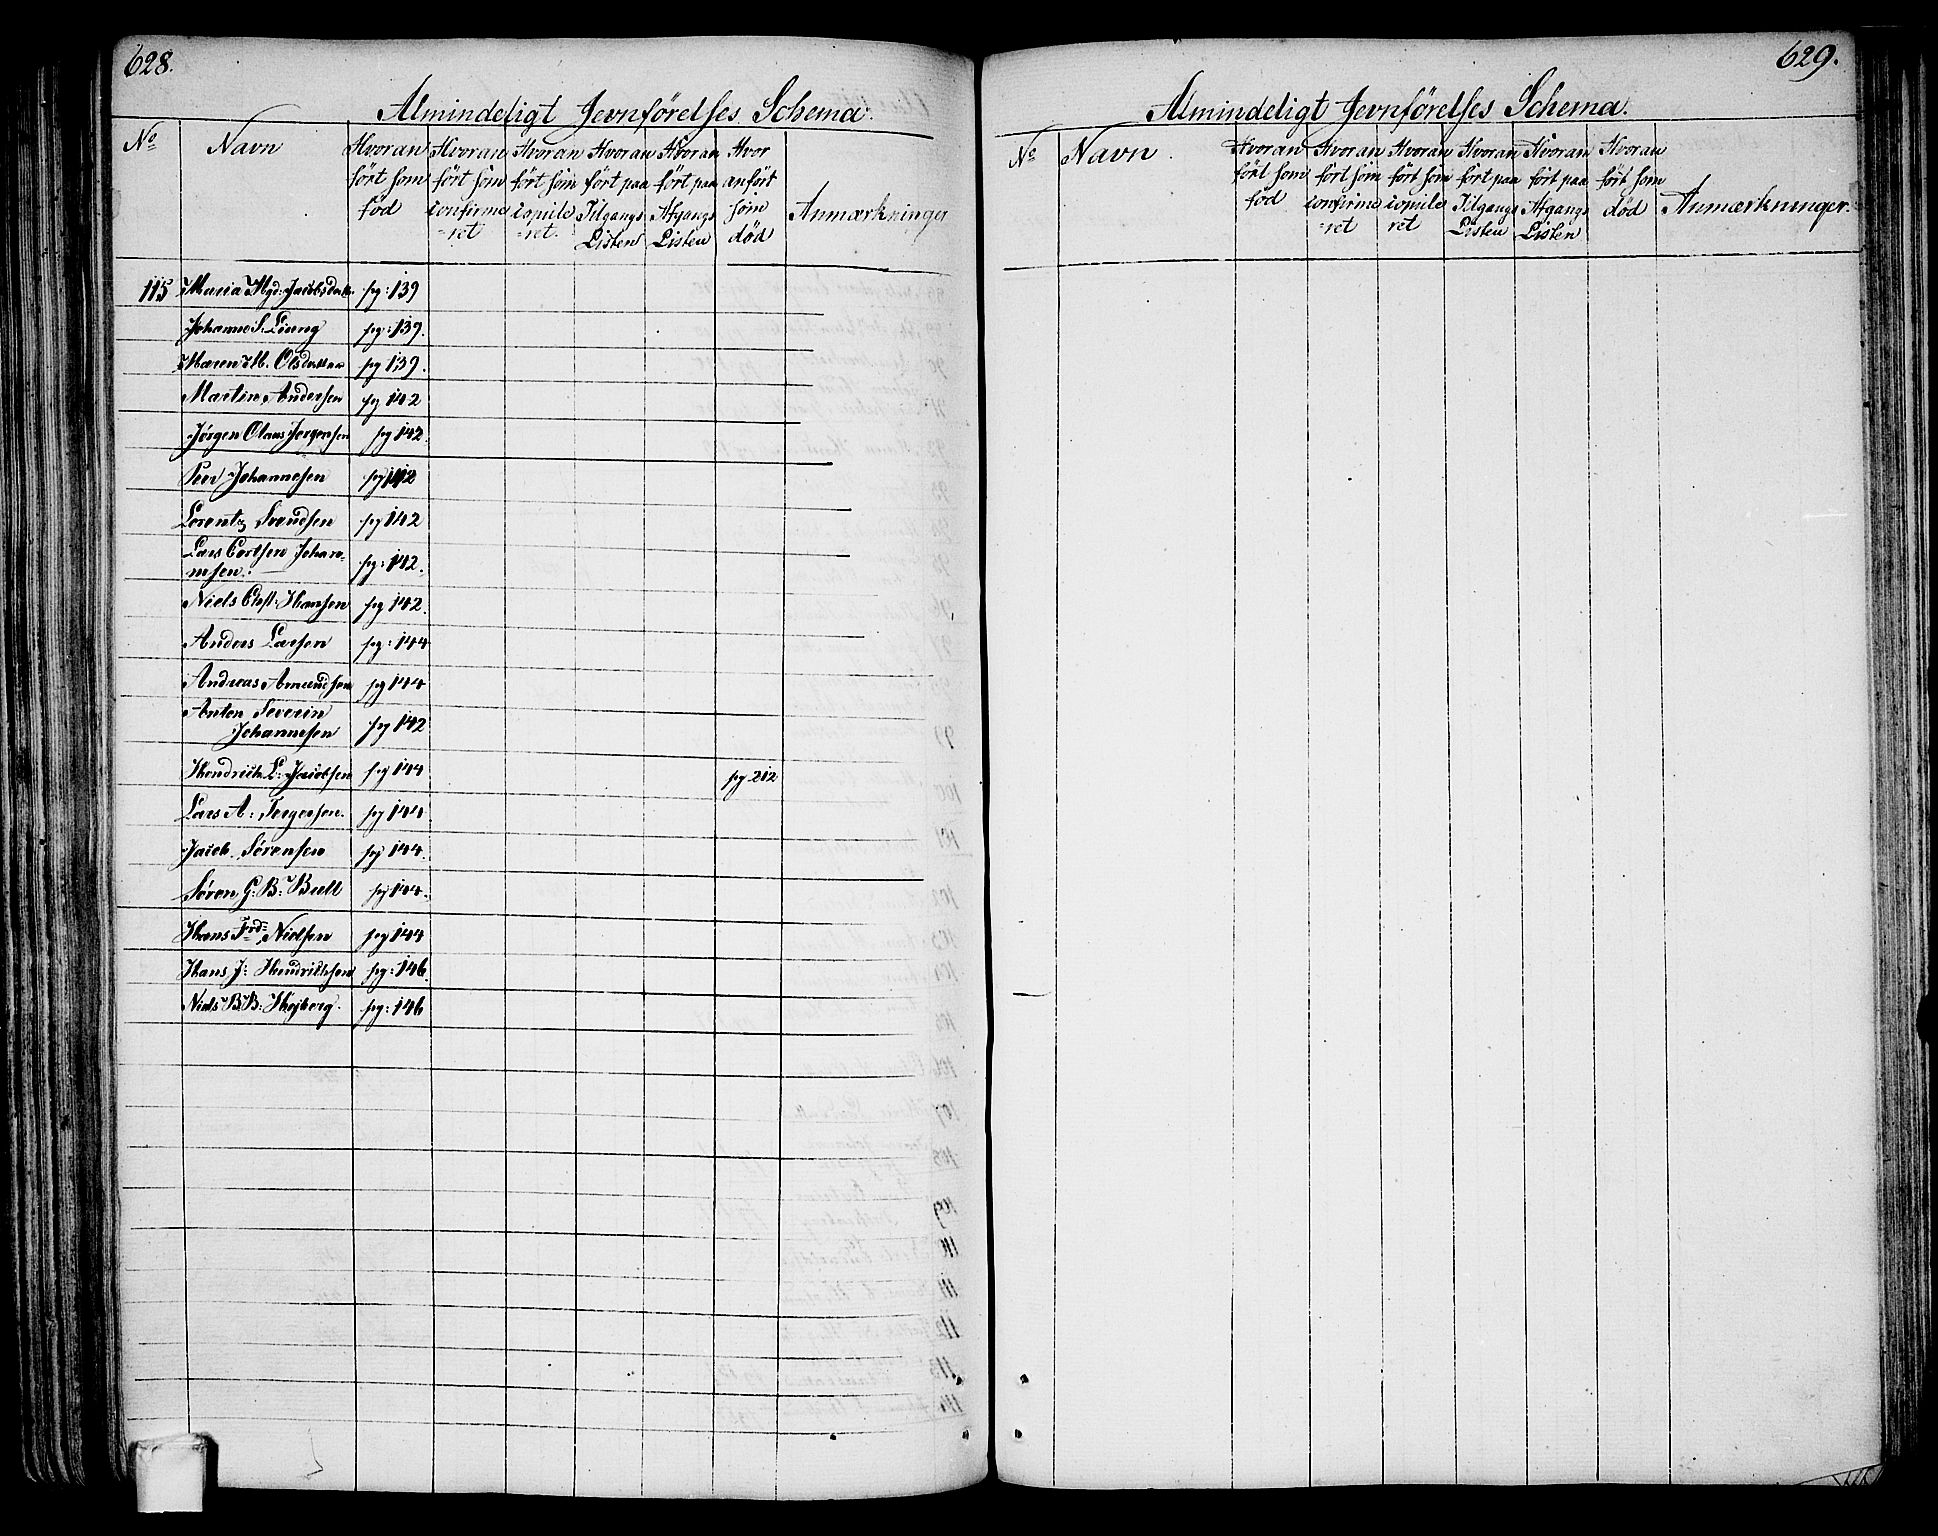 628.
Almindeligt Jevnførelses Schema.
No Navn Hvoran ført som fød Hvoran ført som confirme=ret Hvoran ført som copule=ret. Hvoran ført paa Tilgangs Listen Hvoran ført paa Afgangs Listen Hvor anført som død Anmærkninger
115 Maria Mgd: Jacobsdatt. pg: 139
Johanne S. pg: 139.
Maren M. Olsdatter pg 139.
Martin Andersen pg 142
Jørgen Olaus Jørgensen pg 142.
Peer Johannesen pg 142
Lorentz Svendsen pg 142
Lars Johan=
nsen. pg: 142.
Niels Chst: Hansen pg 142.
Anders Larsen pg: 144
Andreas Amundsen pg 144
Anton Severin
Johannesen pg 142
Hendrich L: Jacobsen pg 144 pg 212
Lars A: Torgersen. pg 144
Jacob Sørensen pg 144.
Søren G: B: Bull pg 144.
Hans Frd= Nielsen pg 144
Hans J: Hendrichsen pg: 146.
Niels B B: Højberg. pg: 146
629.
Almindeligt Jevnførelses Schema.
No Navn. Hvoran ført som fød. Hvoran ført som confirme=ret Hvoran ført som copule ret Hvoran ført paa Tilgangs Listen Hvoran ført paa Afgangs Listen Hvoran ført som død Anmærkninger.